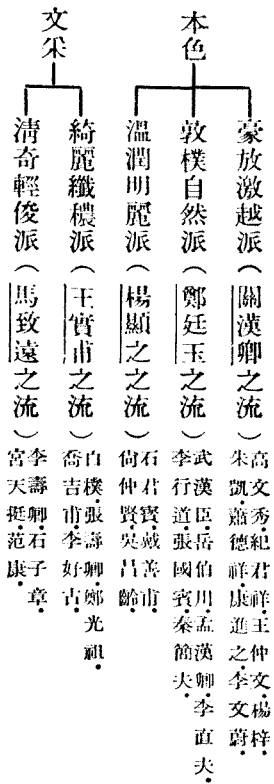 本色
豪放激越派（關漢卿之流）
高文秀·紀君祥·王仲文·楊梓·
朱凱·蕭德祥·康進之·李文蔚·
敦樸自然派（鄭廷玉之流）
武漢臣·岳伯川·孟漢卿·李直夫·
李行道·張國賓·秦簡夫·
溫潤明麗派（楊顯之之流）
石君寶·戴善甫·
尙仲賢·吳昌齡·
文采
綺麗纖穠派（王實甫之流）
白樸·張壽卿·鄭光祖·
喬吉甫·李好古·
淸奇輕俊派（馬致遠之流）
李壽卿·石子章·
宮天挺·范康·